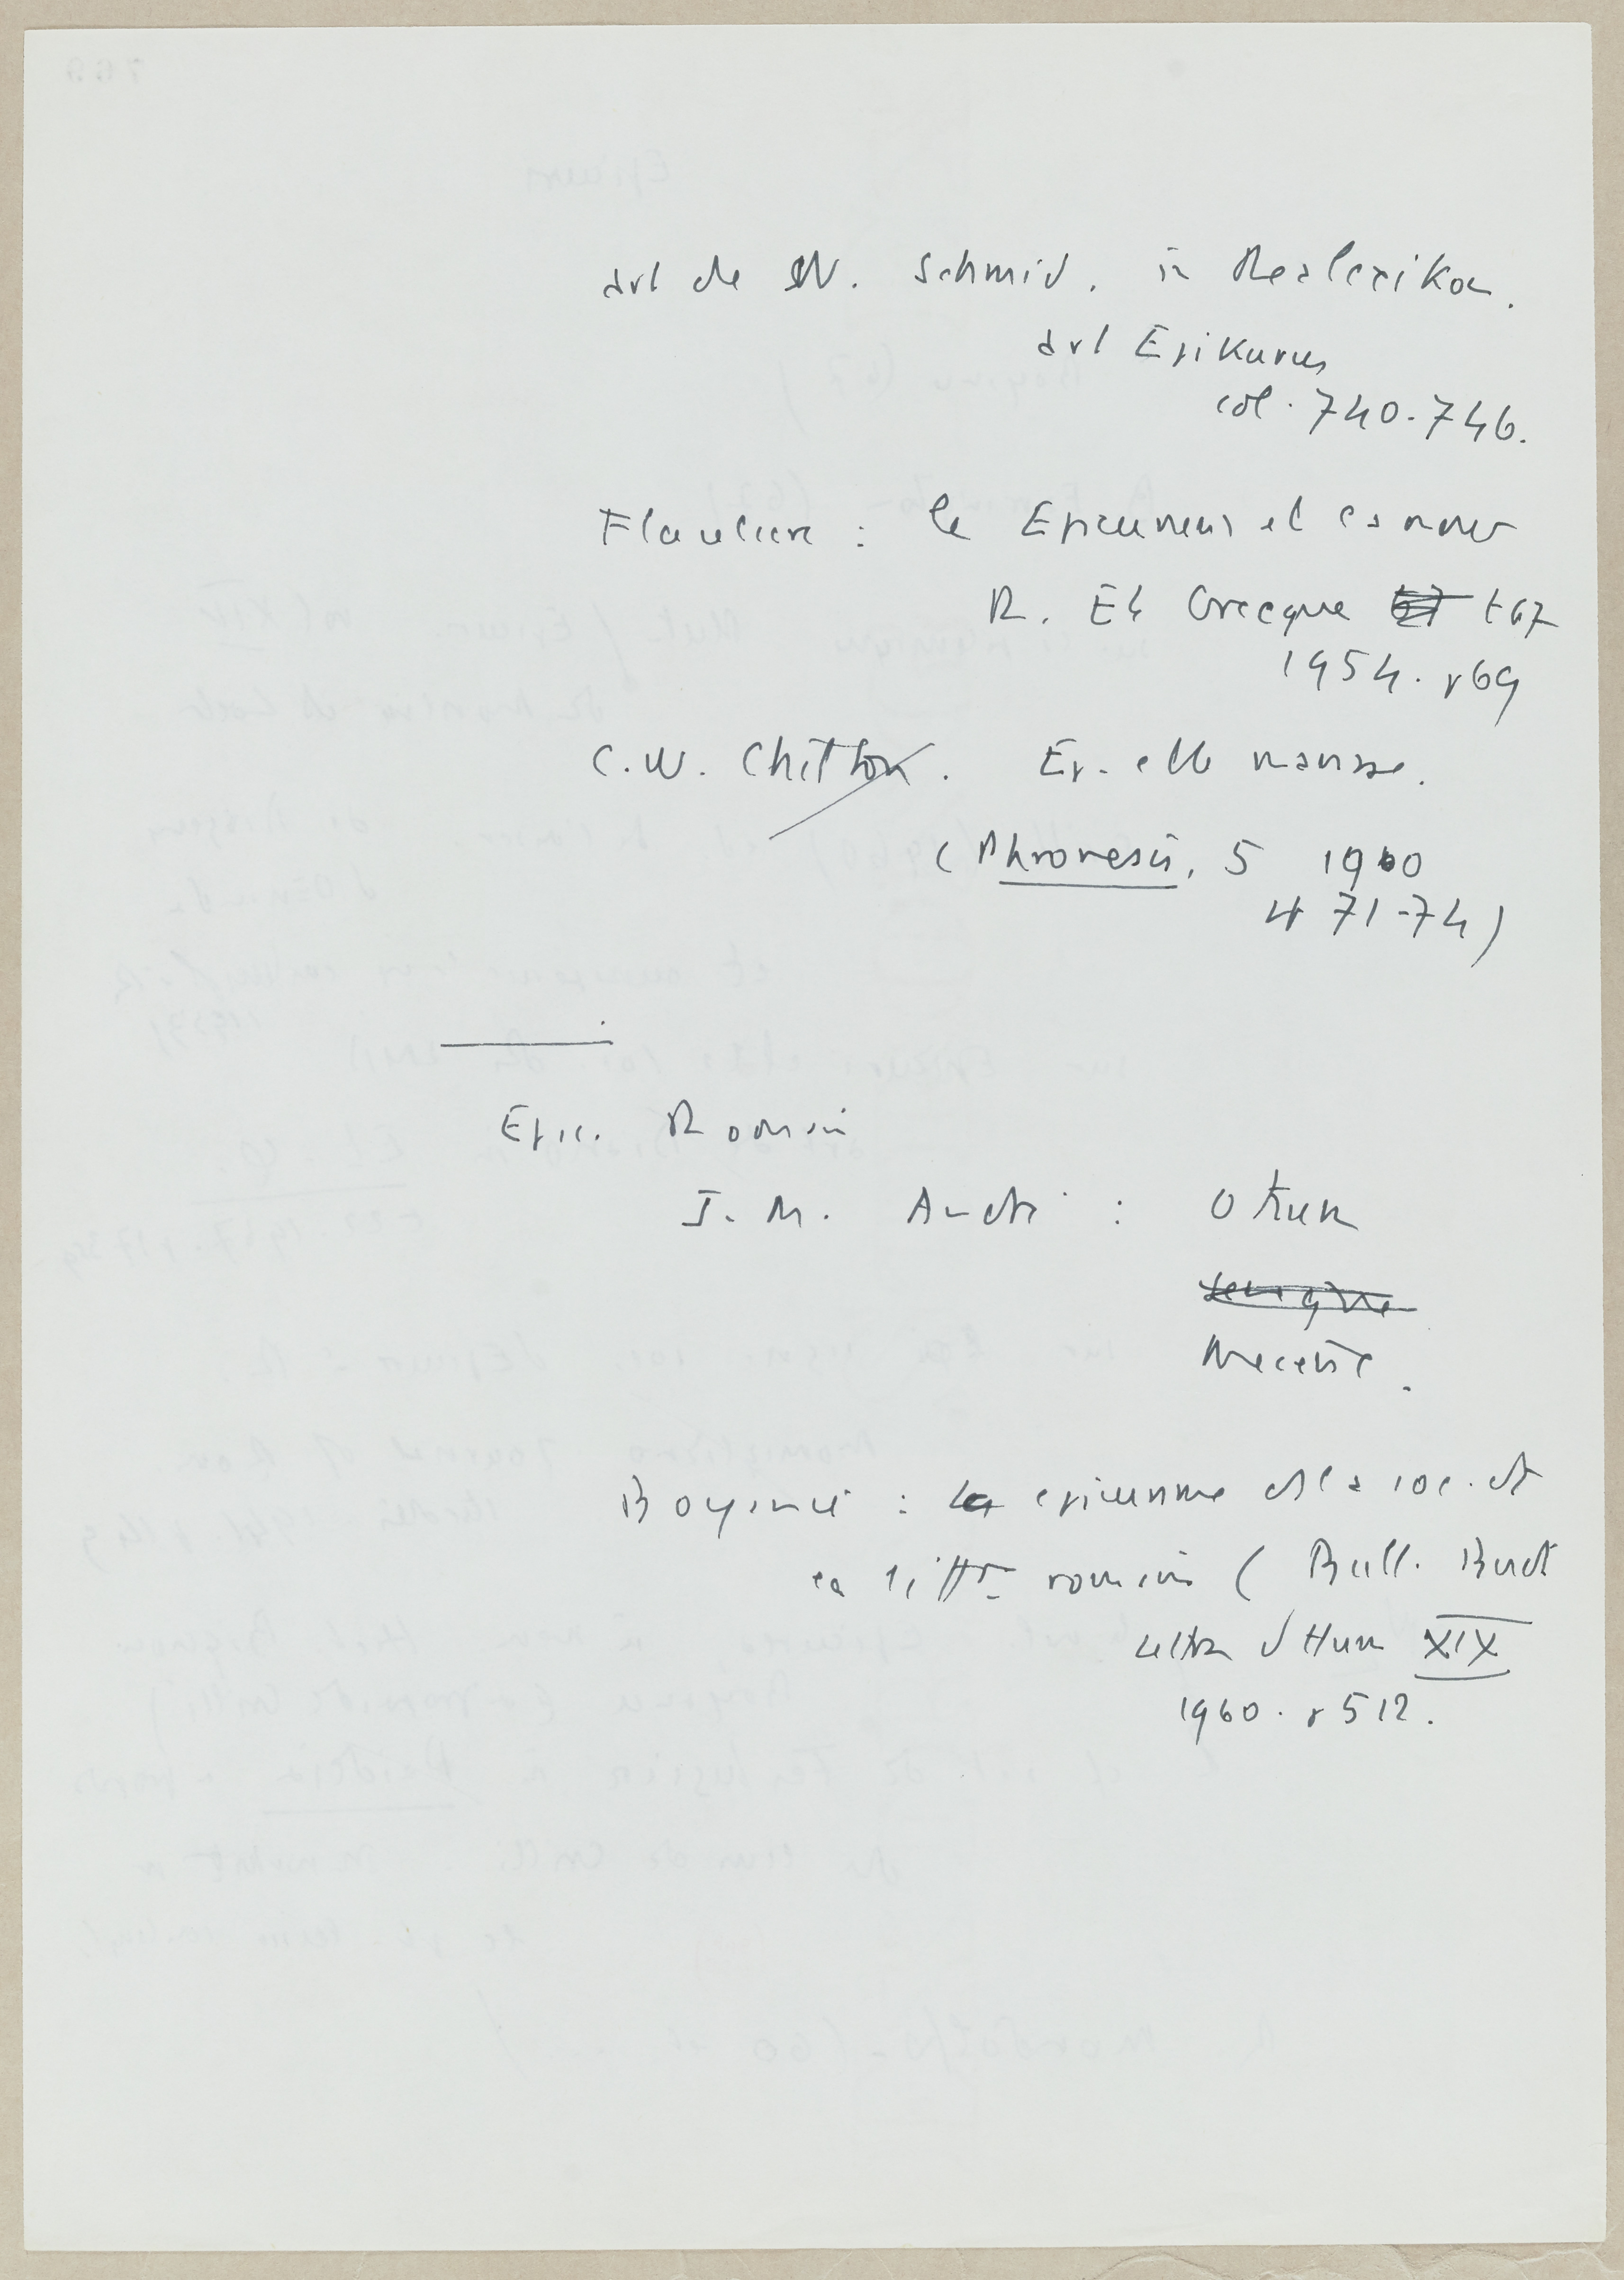 art de W. Schmid. in Realexikon.
art Epikurus
col. 740-746.
Flacelière : les Epicuriens et l'amour
R. Et Grecque t 67
1954. p 69
C.W. Chilton. Ep. et le mariage.
(Phronesis, 5 1960
pp 71-74)
Epic. Romain
J. M. André : Otium
Mécène.
Boyancé : épicurisme ds la soc. et
la litt. romaine (Bull. Budé
Lettres d'Hum XIX
1960. p 512.